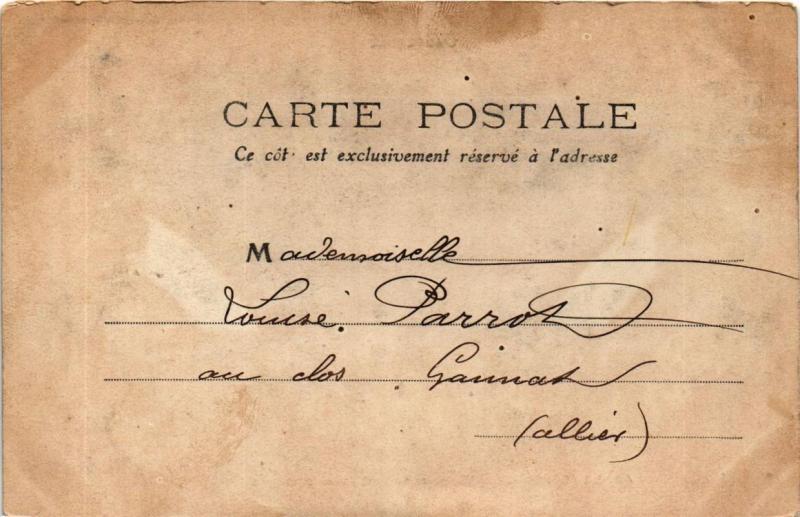 CARTE POSTALE
Ce côt est exclusivement réservé à l'adresse
Mademoiselle
Louise Parrot
au clos Gannat
(allier)